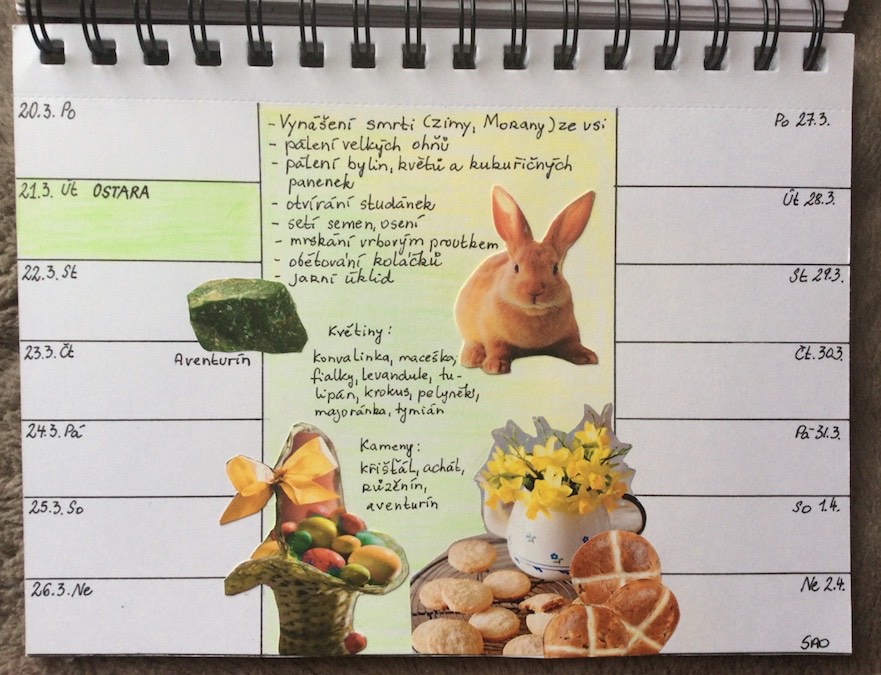 20.3. Po
21.3. Út OSTARA
22.3. St
23.3. Čt
Aventurín
24.3. Pá
25.3. So
26.3. Ne
- Vynášení smrti (zimy, Morany) ze vsi
- pálení velkých ohňů
- pálení bylin, květů a kukuřičných
panenek
- otvírání studánek
- setí semen, osení
- mrskání vrbovým proutkem
- obětování koláčků
- jarní úklid
Květiny:
konvalinka, maceška,
fialky, levandule, tu-
lipán, krokus, pelyněk,
majoránka, tymián
Kameny:
křišťál, achát,
růženín,
aventurín
Po 27.3.
Út 28.3.
St 29.3.
Čt 30.3.
Pá 31.3.
So 1.4.
Ne 2.4.
SAO